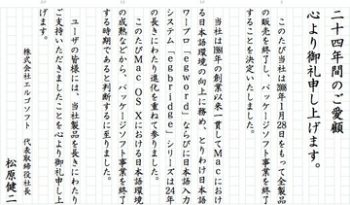 二十四年間のご愛顧
心より御礼申し上げます。
このたび当社は2008年1月28日をもって全製品
の販売を終了し、パッケージソフト事業を終了
することを決定いたしました。
当社は1984年の創業以来一貫してMacにおけ
る日本語環境の向上に務め、とりわけ日本語
ワープロ「egword」ならびに日本語入力
システム「egbridge」シリーズは24年
の長きにわたり進化を重ねて参りました。
このたびMac OS Xにおける日本語環境
の成熟などから、パッケージソフト事業を終了
する時期であると判断するに至りました。
ユーザの皆様には、当社製品を長きにわたり
ご支持いただきましたことを心より御礼申し上
げます。
株式会社エルゴソフト 代表取締役社長
松原健二